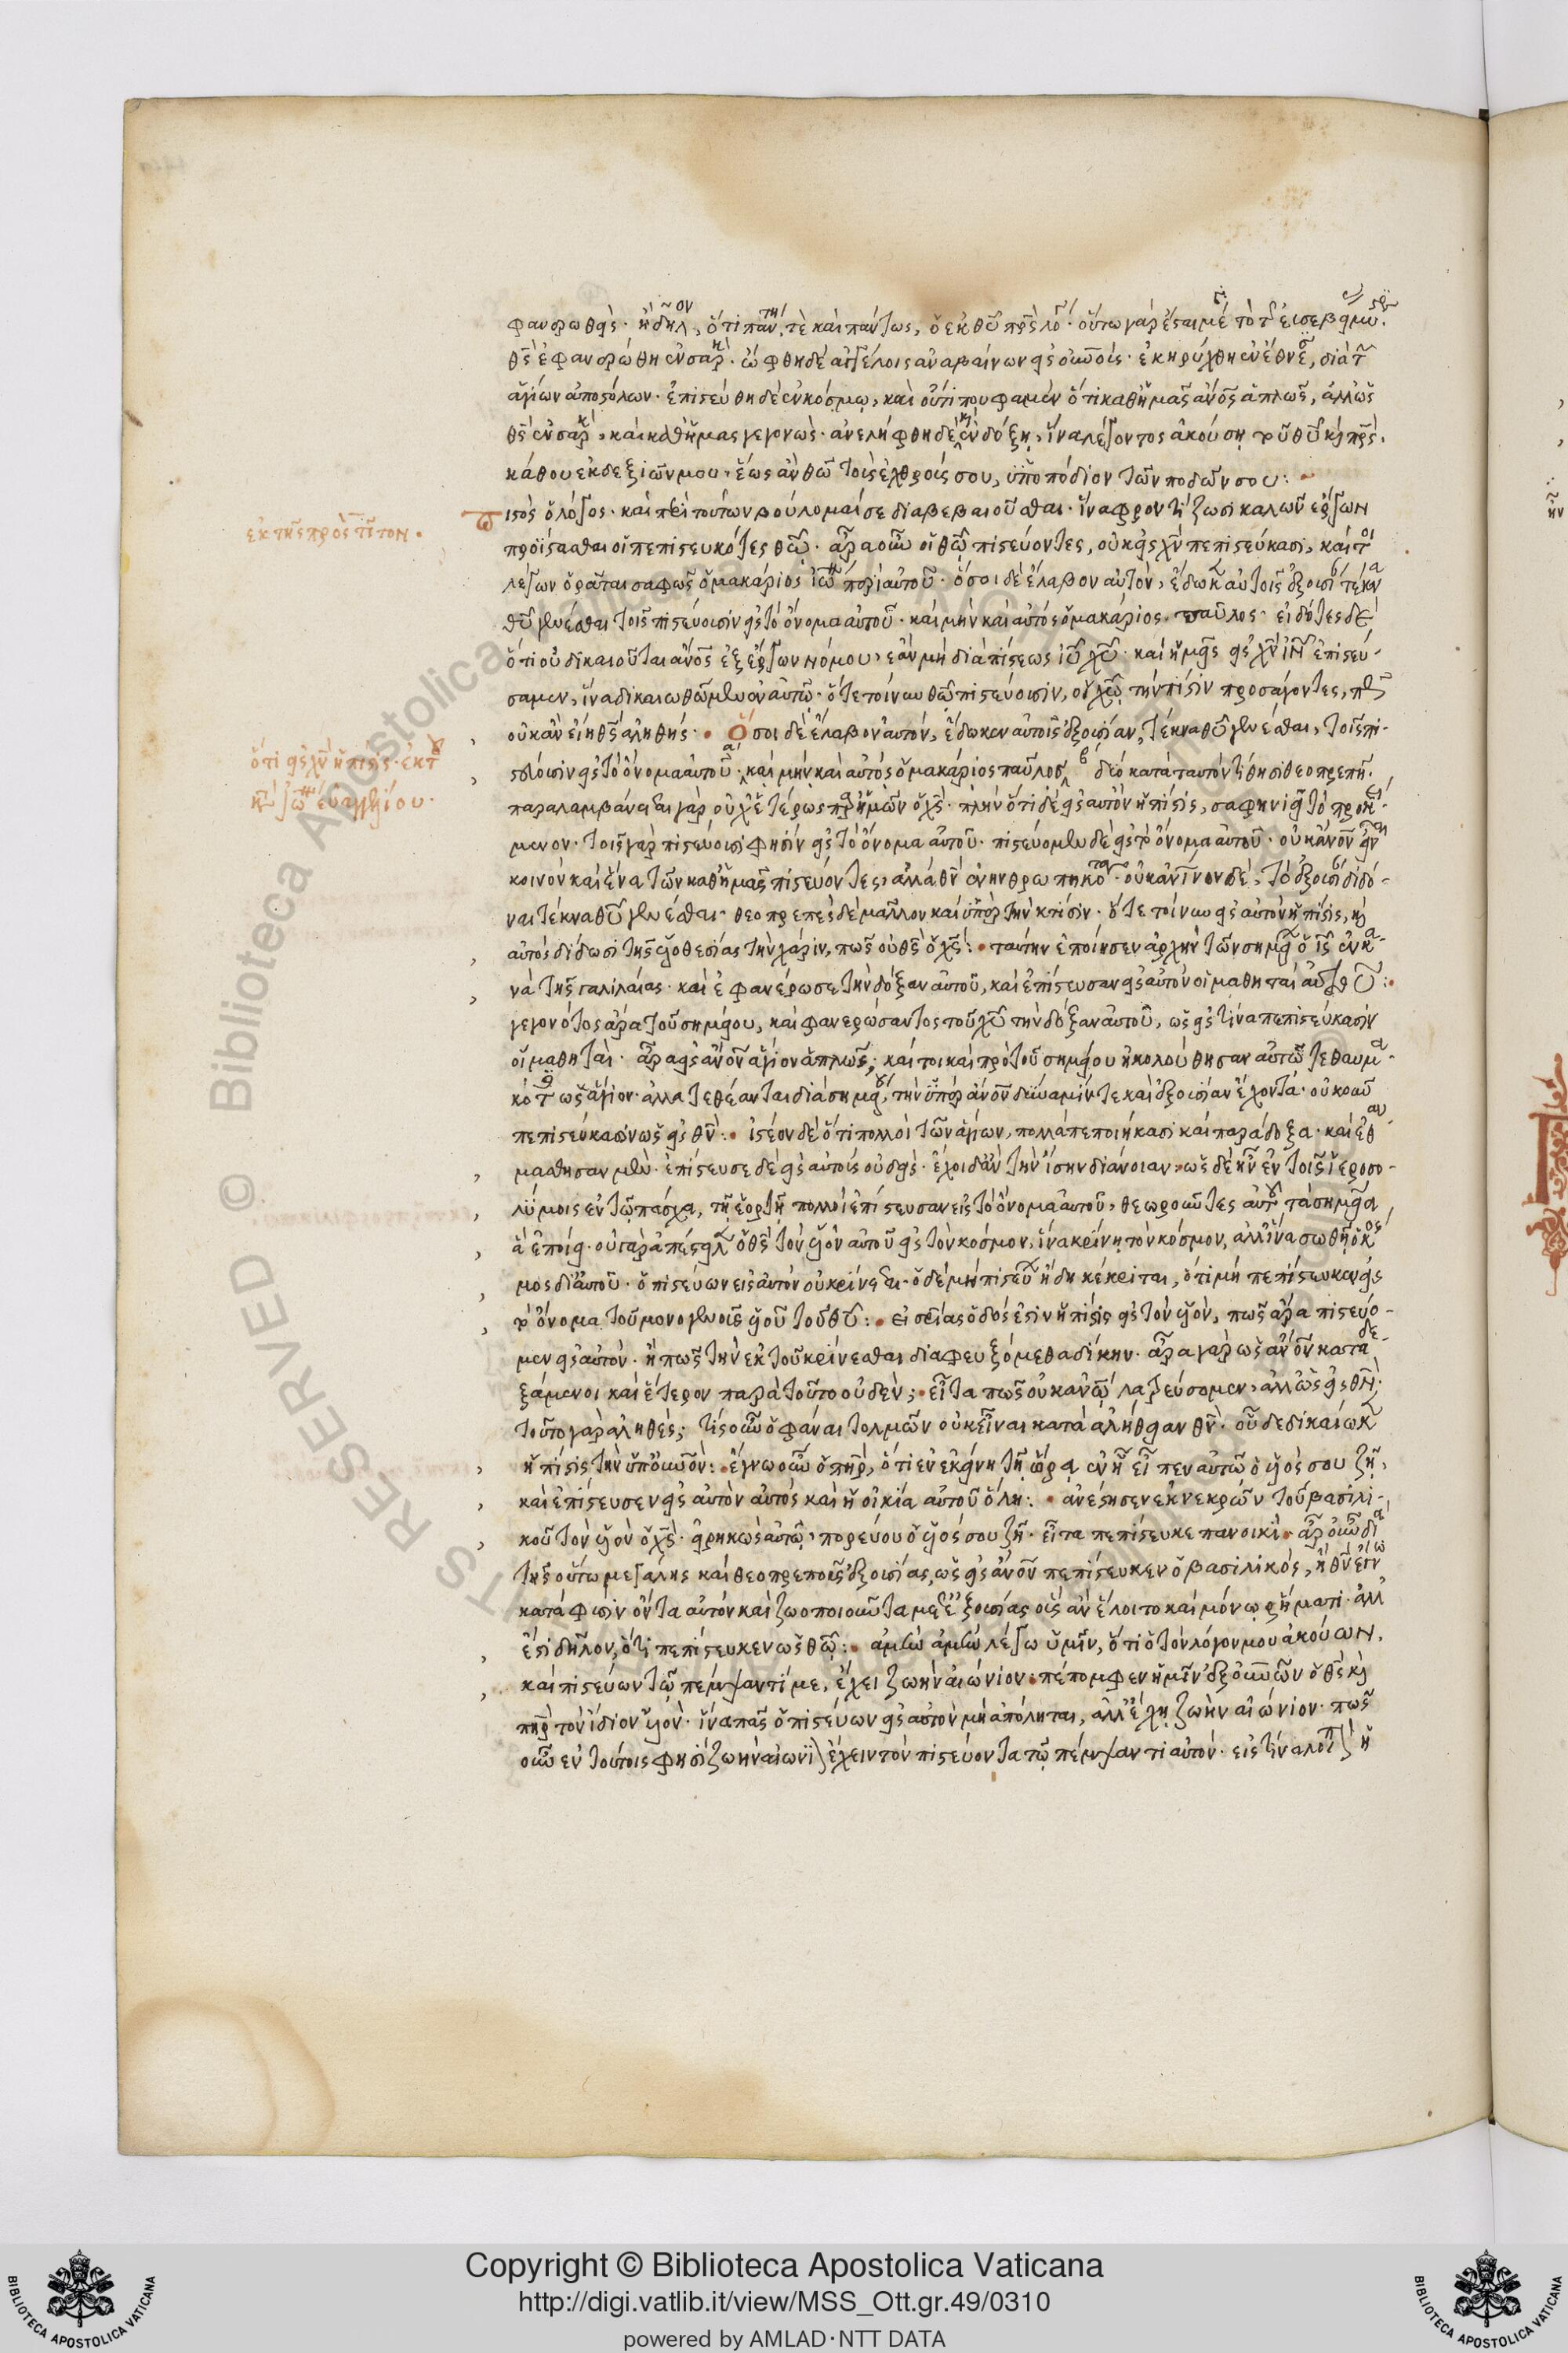 φανερωθείς· ἢ δῆλον, ὅτι πάντη τὲ καὶ πάντως, ὁ ἐκ θῡ πρ̅ς λόγος· οὕτω γὰρ ἔσται μέγα τὸ τῆς εὐσεβείας μυστήριον.
θς̅ ἐφανερώθη ἐν σαρκί· ὤφθη δὲ ἀγγέλοις ἀναβαίνων εἰς οὐνοὺς· ἐκηρύχθη ἐν ἔθνεσι, διὰ τῶν
ἁγίων ἀποστόλων· ἐπιστεύθη δὲ ἐν κόσμῳ, καὶ οὔτί που φαμὲν ὅτι καθ' ἡμᾶς ἄνος ἁπλῶς, ἀλλ' ὡς
θς̅ ἐν σαρκὶ, καὶ καθ' ἡμας γεγονὼς· ἀνελήφθη δὲ καὶ ἐν δόξῃ, ἵνα λέγοντος ἀκούσῃ τοῦ θῡ καὶ πρ̅ς·
κάθου ἐκ δεξιῶν μου· ἕως ἂν θῶ τοὺς ἐχθρούς σου, ὑποπόδιον τῶν ποδῶν σου:
ἐκ τῆς πρὸς τίτον.
Πιστὸς ὁ λόγος· καὶ περὶ τούτων βούλομαί σε διαβεβαιοῦσθαι· ἵνα φροντίζωσι καλῶν ἔργων
προΐστασθαι οἱ πεπιστευκότες θῶ· ἆρα οὖν οἱ θῶ πιστεύοντες, οὐκ εἰς χν̅ πεπιστεύκασι, καί τοι
λέγων ὁρᾶται σαφῶς ὁ μακάριος ἰω περὶ αὐτοῦ· ὅσοι δὲ ἔλαβον αὐτὸν, ἔδωκεν αὐτοῖς ἐξουσίαν τέκνα
θῡ γενέσθαι τοῖς πιστεύουσιν εἰς τὸ ὄνομα αὐτοῦ· καὶ μὴν καὶ αὐτὸς ὁ μακάριος παῦλος· εἰδότες δὲ
ὅτι οὐ δικαιοῦται ἄνος ἐξ ἔργων νόμου, ἐὰν μὴ διὰ πίστεως ιῡ χῡ· καὶ ἡμεῖς εἰς χν̅ ιν̅ ἐπιστεύ-
σαμεν, ἵνα δικαιωθῶμεν ἐν αὐτῷ· ὅτε τοίνυν θῶ πιστεύουσιν, οἱ χῶ τὴν πίστιν προσάγοντες, πῶς
οὐκ ἂν εἴη θς̅ ἀληθής· Ὅσοι δὲ ἔλαβον αὐτόν, ἔδωκεν αὐτοῖς ἐξουσίαν, τέκνα θῡ γενέσθαι, τοῖς πι-
ὅτι εἰς χν̅ ἡ πίστις· ἐκ τοῦ
κατὰ ἰω εὐαγγελίου·
στεύουσιν εἰς τὸ ὄνομα αὐτοῦ· καὶ μὴν καὶ αὐτὸς ὁ μακάριος παῦλος δεό κατὰ ταυτὸν τίθησι θεοπρεπῆ.
παραλαμβάνεσθαι γὰρ οὐχ ἑτέρως παρ' ἡμῶν ὁ χς̅· πλὴν ὅτι δὲ εἰς αὐτὸν ἡ πίστις, σαφηνιεῖ τὸ προκεί-
μενον· τοῖς γὰρ πιστεύουσι φησὶν εἰς τὸ ὄνομα αὐτοῦ· πιστεύομεν δὲ εἰς τὸ ὄνομα αὐτοῦ· οὐκ ἄνον
κοινὸν καὶ ἕνα τῶν καθ' ἡμᾶς πιστεύοντες, ἀλλὰ θν̅ ἐνηνθρωπηκότα· οὐκ ἀνῖνον δὲ, τὸ ἐξουσίαν διδό-
ναι τέκνα θῡ γενέσθαι· θεοπρεπὲς δὲ μᾶλλον καὶ ὑπὲρ τὴν κτίσιν· ὅτε τοίνυν εἰς αὐτὸν ἡ πίστις, καὶ
αὐτὸς δίδωσι τῆς υἱοθεσίας τὴν χάριν, πῶς οὐ θς̅ ὁ χς̅: ταύτην ἐποίησεν ἀρχὴν τῶν σημείων ὁ ις̅ ἐν κα-
νὰ τῆς γαλιλαίας· καὶ ἐφανέρωσε τὴν δόξαν αὐτοῦ, καὶ ἐπίστευσαν εἰς αὐτὸν οἱ μαθηταὶ αὐτοῦ:
γεγονότος ἄρα τοῦ σημείου, καὶ φανερώσαντος τοῦ χῡ τὴν δόξαν αὐτοῦ, ὡς εἰς τίνα πεπιστεύκασιν
οἱ μαθηταὶ· ἆρα εἰς ἄνον ἅγιον ἁπλῶς; καί τοι καὶ πρὸ τοῦ σημείου ἠκολούθησαν αὐτῶ τεθαυμα-
κότες ὡς ἅγιον· ἀλλὰ τεθέανται διὰ σημείου, τὴν ὑπὲρ ἄνον δύναμίν τε καὶ ἐξουσίαν ἔχοντα· οὐκοῦν
πεπιστεύκασιν ὡς εἰς θν̅: ἰστέον δὲ ὅτι πολλοὶ τῶν ἁγίων, πολλὰ πεποιήκασι καὶ παράδοξα· καὶ ἐθαυ-
μάσθησαν μὲν· ἐπίστευσε δὲ εἰς αὐτοὺς οὐδεὶς· ἔχοι δ' ἂν τὴν ἴσην διάνοιαν· ὡς δὲ ἦν ἐν τοῖς ἱεροσο-
λύμοις ἐν τῷ πάσχα, τῇ ἑορτῇ πολλοὶ ἐπίστευσαν εἰς τὸ ὄνομα αὐτοῦ, θεωροῦντες αὐτοῦ τὰ σημεῖα
ἃ ἐποίει· οὐ γὰρ ἀπέστειλεν ὁ θς̅ τὸν υἱὸν αὐτοῦ εἰς τὸν κόσμον, ἵνα κρίνῃ τὸν κόσμον, ἀλλ' ἵνα σωθῇ ὁ κόσ-
μος δι' αὐτοῦ· ὁ πιστεύων εἰς αὐτὸν οὐ κρίνεται· ὁ δὲ μὴ πιστεύων ἤδη κέκριται, ὅτι μὴ πεπίστευκεν εἰς
τὸ ὄνομα τοῦ μονογενοῦς υἱοῦ τοῦ θῡ: εἰ σρίας ὁδός ἐστιν ἡ πίστις εἰς τὸν υἱὸν, πῶς ἄρα πιστεύο-
μεν εἰς αὐτὸν· ἢ πῶς τὴν ἐκ τοῦ κρίνεσθαι διαφευξόμεθα δίκην· ἆρα γὰρ ὡς ἄνον καταδε-
ξάμενοι καὶ ἕτερον παρὰ τοῦτο οὐδὲν; εἶτα πῶς οὐκ ἀνῶ λατρεύσομεν, ἀλλ' ὡς εἰς θν̅.
τοῦτο γὰρ ἀληθές; τίς οὖν ὁ φάναι τολμῶν οὐκ εἶναι κατὰ ἀλήθειαν θν̅· οὗ δεδικαίωκεν
ἡ πίστις τὴν ὑπ' οὐνόν: ἔγνω οὖν ὁ πηρ, ὅτι ἐν ἐκείνῃ τῇ ὥρᾳ ἐν ᾗ εἶπεν αὐτῶ ὁ υἱός σου ζῇ,
καὶ ἐπίστευσεν εἰς αὐτὸν αὐτὸς καὶ ἡ οἰκία αὐτοῦ ὅλη: ἀνέστησεν ἐκ νεκρῶν τοῦ βασιλι-
κοῦ τὸν υἱὸν ὁ χς̅· εἰρηκὼς αὐτῷ, πορεύου ὁ υἱός σου ζῇ· εἶτα πεπίστευκε πανοικὶ· ἆρ' οὖν διὰ
τῆς οὕτω μεγάλης καὶ θεοπρεποῦς ἐξουσίας, ὡς εἰς ἄνον πεπίστευκεν ὁ βασιλικὸς, ἢ θν̅
κατὰ φύσιν ὄντα αὐτὸν καὶ ζωοποιοῦντα μετ' ἐξουσίας οὓς ἂν ἕλοιτο καὶ μόνῳ ῥήματι· ἀλλ'
ἔστι δῆλον, ὅτι πεπίστευκεν ὡς θῶ: ἀμὴν ἀμὴν λέγω ὑμῖν, ὅτι ὁ τὸν λόγον μου ἀκούων.
καὶ πιστεύων τῷ πέμψαντί με, ἔχει ζωὴν αἰώνιον· πέπομφεν ἡμῖν ἐξ οὐνῶν ὁ θς̅ καὶ
πηρ τὸν ἴδιον υἱὸν· ἵνα πᾶς ὁ πιστεύων εἰς αὐτὸν μὴ ἀπόληται, ἀλλ' ἔχῃ ζωὴν αἰώνιον· πῶς
οὖν ἐν τούτοις φησὶ ζωὴν αἰώνιον ἔχειν τὸν πιστεύοντα τῷ πέμψαντι αὐτόν· εἰς τίνα λοιπὸν ἡ
RESERVED © Biblioteca Apostolica Vaticana
Copyright © Biblioteca Apostolica Vaticana
http://digi.vatlib.it/view/MSS_Ott.gr.49/0310
powered by AMLAD·NTT DATA
BIBLIOTECA APOSTOLICA VATICANA
BIBLIOTECA APOSTOLICA VATICANA